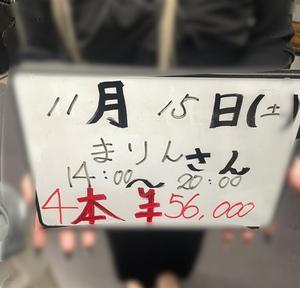 11月 15日(土)
まりんさん
14:00～20:00
4本 ¥56,000